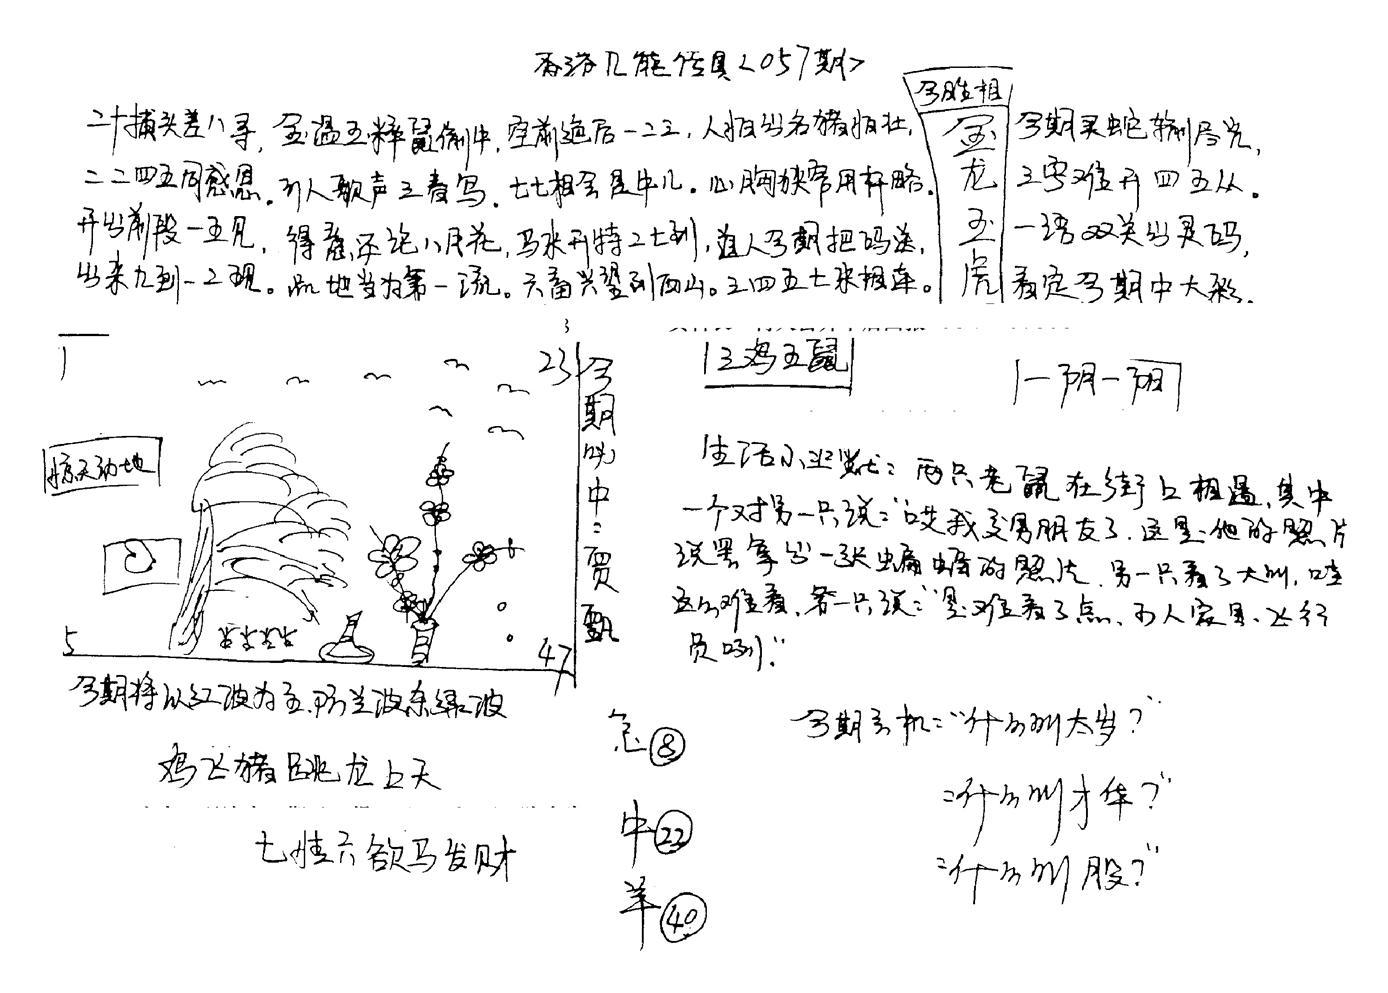 香港几能传真<057期>
今期生相
金龙玉虎
二十摘头差八寻，金温玉粹鼠偷牛，空前绝后一二三，人怕出名猪怕壮，
二二四五同感恩。引人歌声三春鸟，七七相会是牛儿。心胸狭窄用奸略。
开出前段一五见，得意还论八月花，马来开特二七到，道人今期把码送，
出来九到一二现。此地当为第一流。六畜兴望到西山。三四五七来相连。
今期买蛇输局光，
三零难开四五从。
一语双关出灵码，
看定今期中大彩。
1
23
5
47
惊天动地
今期必中：贾甄
三鸡五鼠
一阴一阳
生活小幽默：两只老鼠在街上相遇，其中
一个对另一只说：“哎我交男朋友了，这是他的照片
说罢拿出一张蝙蝠的照片，另一只看了大叫，哇
这么难看，另一只说：“是难看了点，可人家是飞行
员咧！”
今期将以红波为主，防兰波杀绿波
鸡飞猪跳龙上天
七情六欲马发财
急 8
中 22
羊 40
今期玄机：“什么叫太岁？”
：“什么叫才华？”
：“什么叫股？”